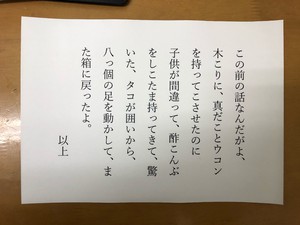 この前の話なんだがよ、
木こりに、真だことウコン
を持ってこさせたのに
子供が間違って、酢こんぶ
をしこたま持ってきて、驚
いた、タコが囲いから、
八っ個の足を動かして、ま
た箱に戻ったよ。
以上